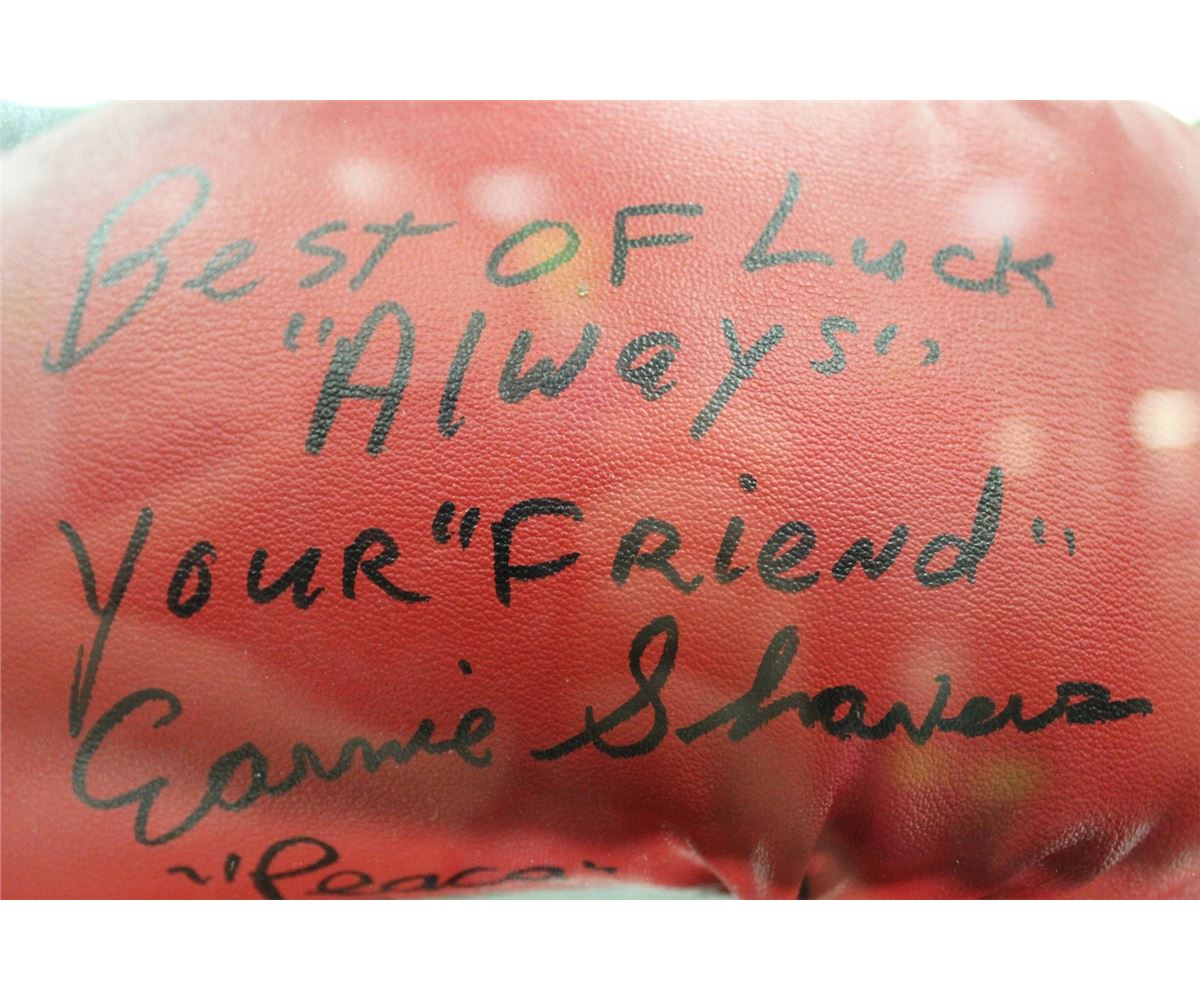 Best OF Luck
"Always"
Your "Friend"
Earnie Shavers
~"Peace"